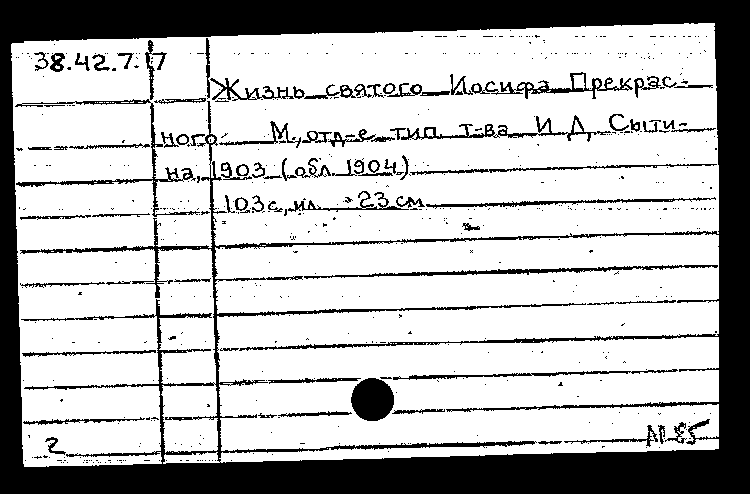 38.42.7.17
Жизнь святого Иосифа Прекрас-
ного М., отд-е тип. т-ва И. Д. Сыти-
на, 1903 (обл. 1904)
103 с., ил. 23 см.
2